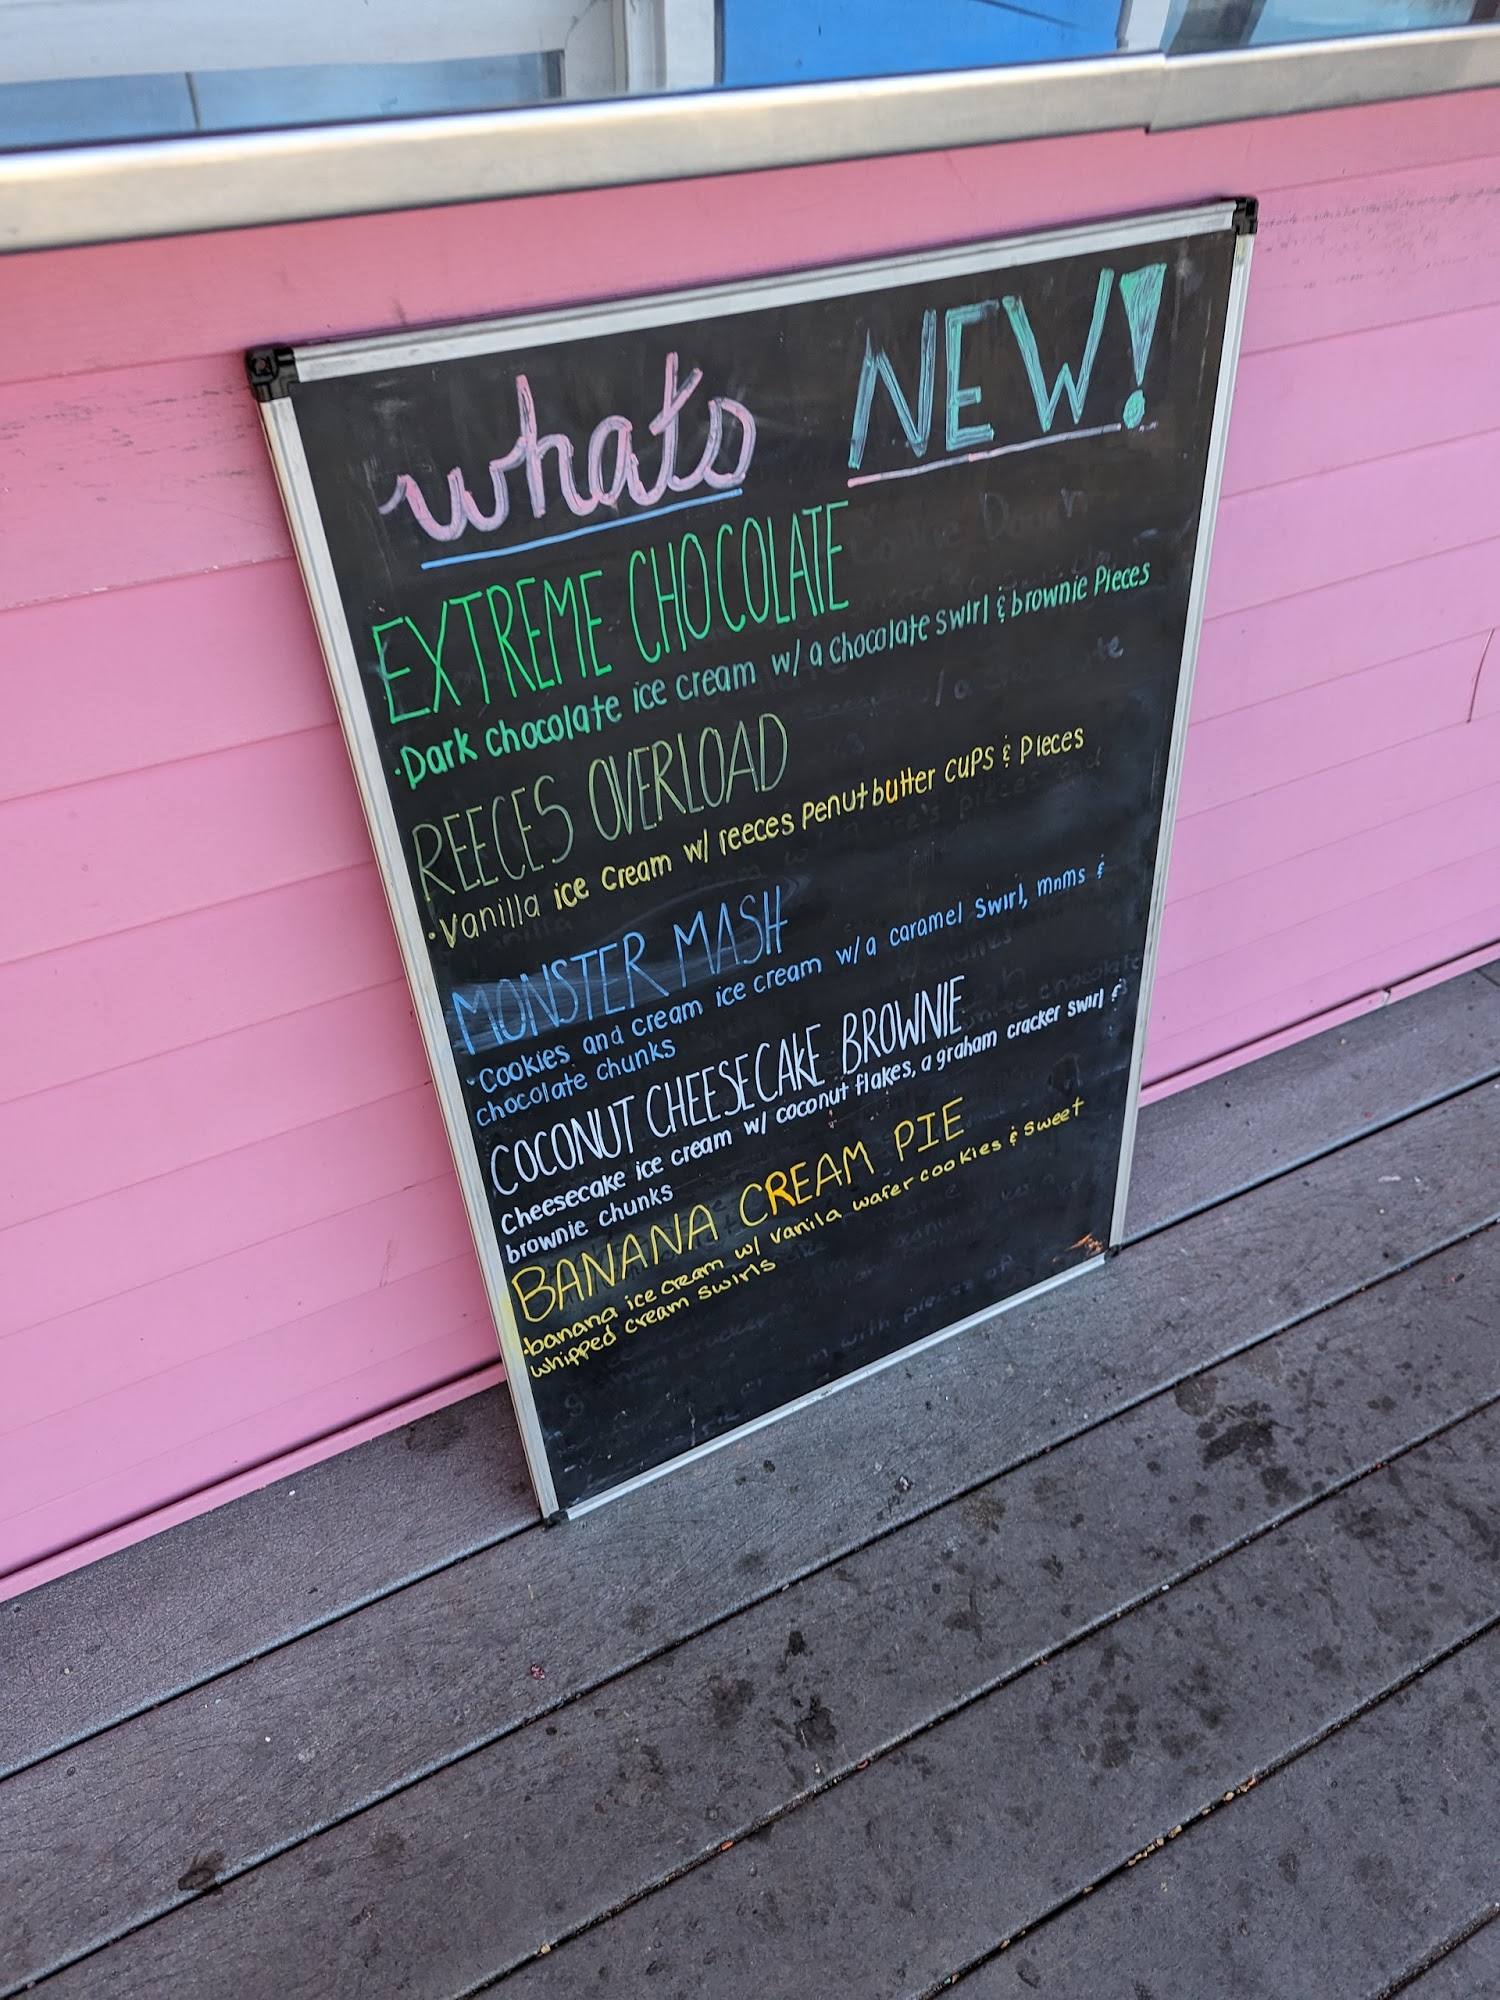 whats NEW!
EXTREME CHOCOLATE
·Dark chocolate ice cream w/ a chocolate swirl & brownie Pieces
REECES OVERLOAD
·vanilla ice cream w/ reeces penutbutter cups & pieces
MONSTER MASH
·Cookies and cream ice cream w/ a caramel swirl, mnms &
chocolate chunks
COCONUT CHEESECAKE BROWNIE
cheesecake ice cream w/ coconut flakes, a graham cracker swirl &
brownie chunks
BANANA CREAM PIE
·banana ice cream w/ vanila wafer cookies & sweet
whipped cream swirls